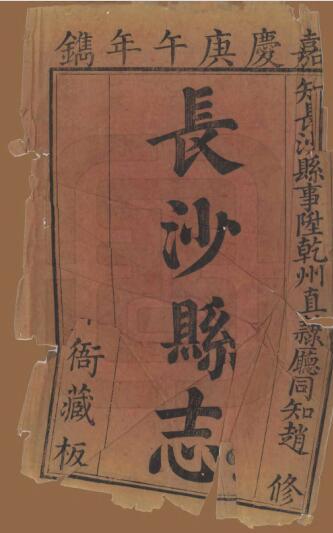 嘉慶庚午年鐫
知長沙縣事陞乾州真隸廳同知趙 修
長沙縣志
衙藏板